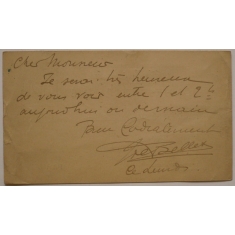 Cher Monsieur
Je serai très heureux
de vous voir entre 1 et 2h
aujourd'hui ou demain
Bien Cordialement
Ce Lundi